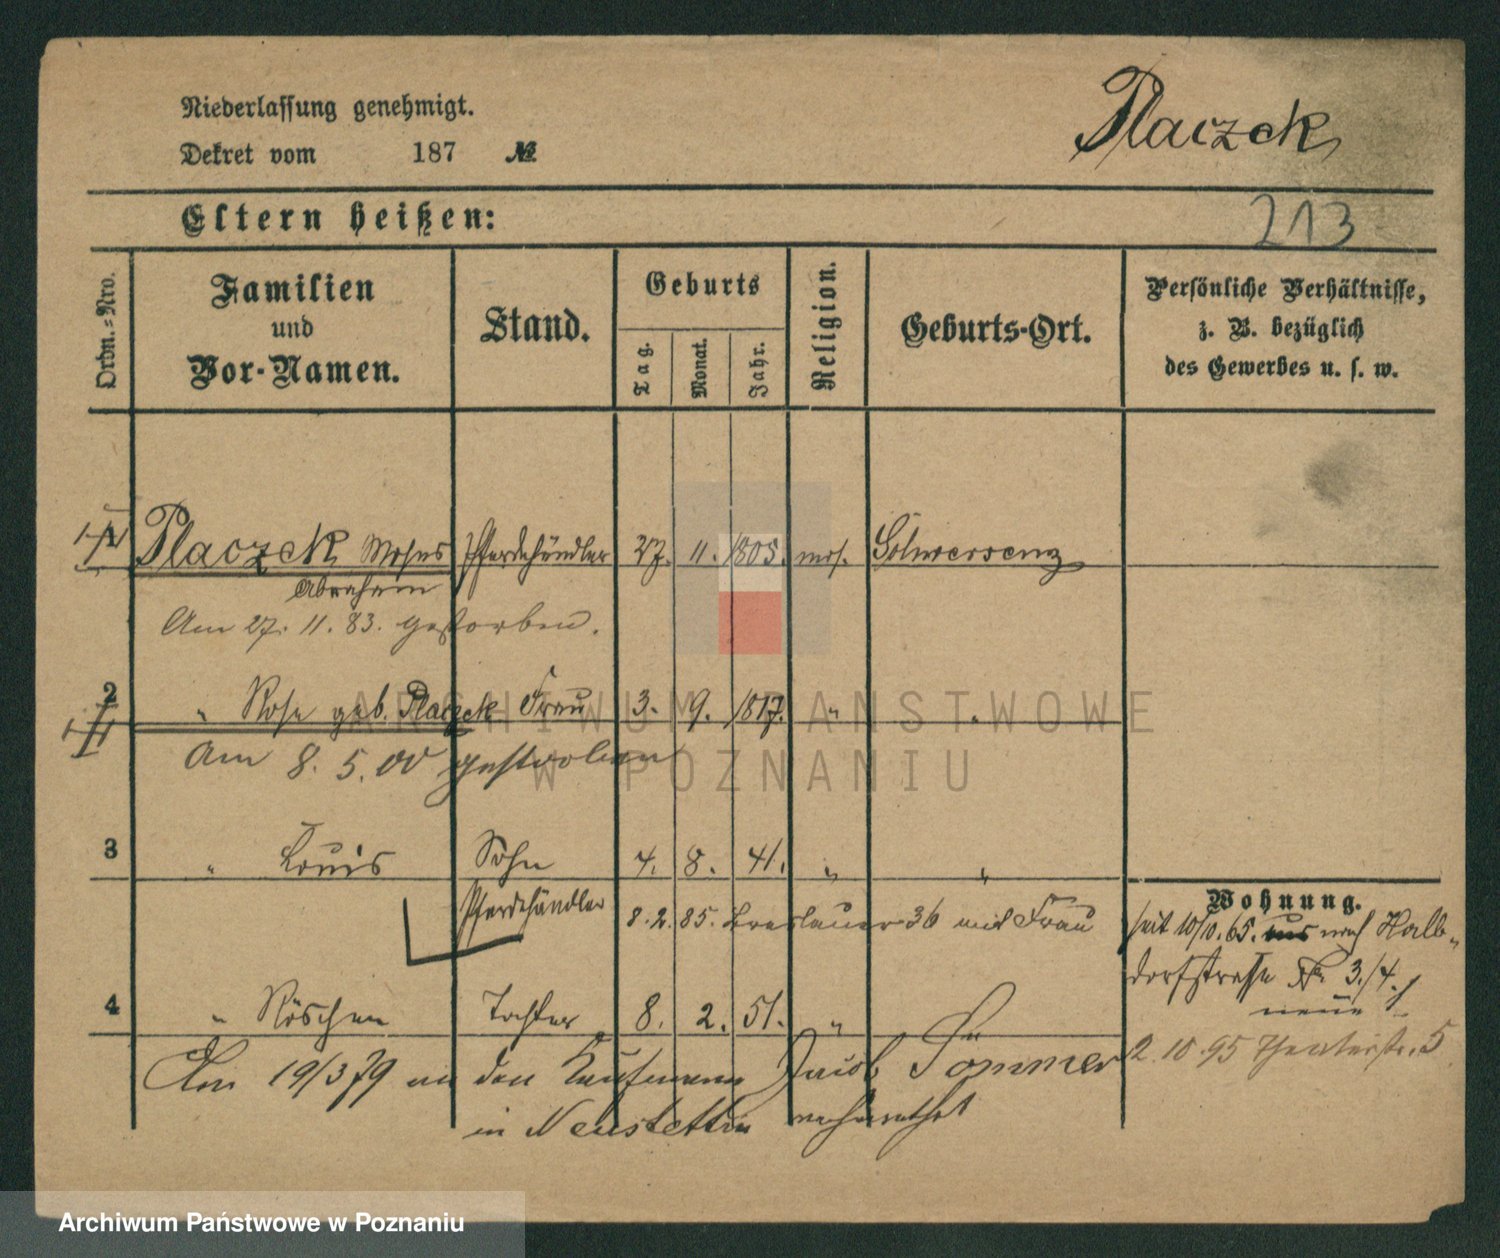 Niederlassung genehmigt.
Placzek
Dekret vom 187 №
Eltern heißen:
213
Ordn.=Nro.
Familien und Vor-Namen.
Stand.
Geburts
Tag.
Monat.
Jahr.
Religion.
Geburts-Ort.
Persönliche Verhältnisse,
z. B. bezüglich
des Gewerbes u. s. w.
1 Placzek Moses Pferdehändler 27. 11. 1805. mos. Schwersenz
Abraham
Am 27. 11. 83. gestorben.
2 " Rose geb. Placzek Frau 3. 9. 1817. " "
Am 8. 5. 00 gestorben
3 " Louis Sohn 4. 8. 41. " "
Pferdehändler 8. 2. 85. Breslauer 36 mit Frau
Wohnung.
seit 10/10. 65. aus nach Halb-
dorfstraße № 3./4.
neue
4 " Röschen Tochter 8. 2. 51. "
2. 10. 95 Theaterstr. 5
Am 19/3 79 an den Kaufmann Jacob Sommer
in Neustettin verheirathet
ARCHIWUM PAŃSTWOWE
W POZNANIU
Archiwum Państwowe w Poznaniu